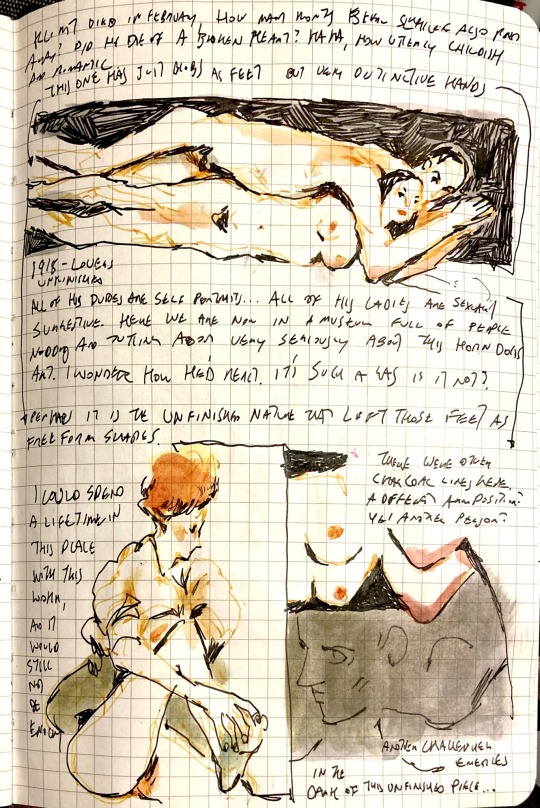 KLIMT DIED IN FEBRUARY, HOW MANY MONTHS BEFORE SCHIELE ALSO
AWAY? DID HE DIE OF A BROKEN HEART? HAHA, HOW UTTERLY CHILDISH
AND ROMANTIC
THIS ONE HAS JUST BLOBS AS FEET BUT VERY DISTINCTIVE HANDS
1918 - LOVERS
UNFINISHED
ALL OF HIS DUDES ARE SELF PORTRAITS... ALL OF HIS LADIES ARE SEXUALLY
SUGGESTIVE. HERE WE ARE NOW IN A MUSEUM FULL OF PEOPLE
NODDING AND TUTTING AWAY VERY SERIOUSLY ABOUT THIS HORN DOGS
ART. I WONDER HOW HE'D REACT. IT'S SUCH A GAS IS IT NOT?
PERHAPS IT IS THE UNFINISHED NATURE THAT LEFT THOSE FEET AS
FREE FORM SHAPES.
I COULD SPEND
A LIFETIME IN
THIS PLACE
WITH THIS
WORK,
AND IT
WOULD
STILL
NOT
BE
ENOUGH
THERE WERE OTHER
CHARCOAL LINES HERE,
A DIFFERENT ARM POSITION?
YET ANOTHER PERSON?
ANOTHER CHALLENGER
EMERGES
IN THE
DARK OF THIS UNFINISHED PIECE...